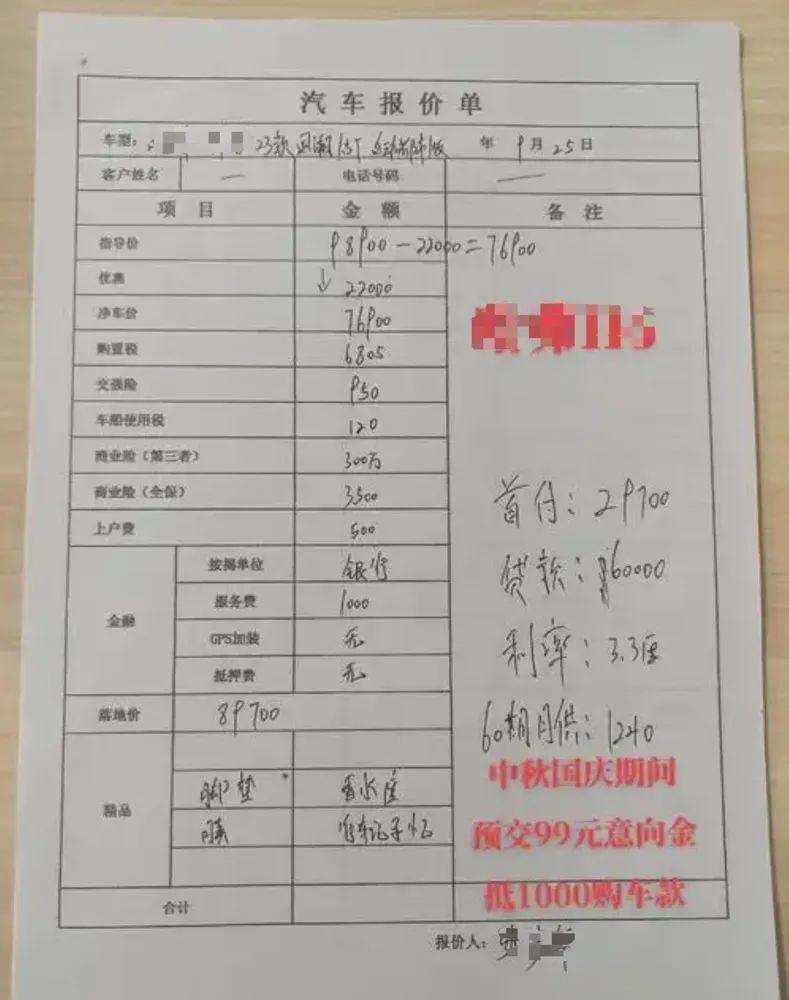 汽车报价单
车型: 23款 国潮 1.5T 年 9月25日
客户姓名 — 电话号码 —
项目 金额 备注
指导价 98900-22000=76900
优惠 ↓22000
净车价 76900
购置税 6805
交强险 950
车船使用税 120
商业险(第三者) 300万
商业险(全保) 3500
上户费 500
首付: 29700
金融 按揭单位 银行
贷款: 60000
服务费 1000
GPS加装 无
利率: 3.3厘
抵押费 无
落地价 89700
60期月供: 1240
精品
脚垫 香水座
膜 行车记录仪
中秋国庆期间
预交99元意向金
抵1000购车款
合计
报价人: